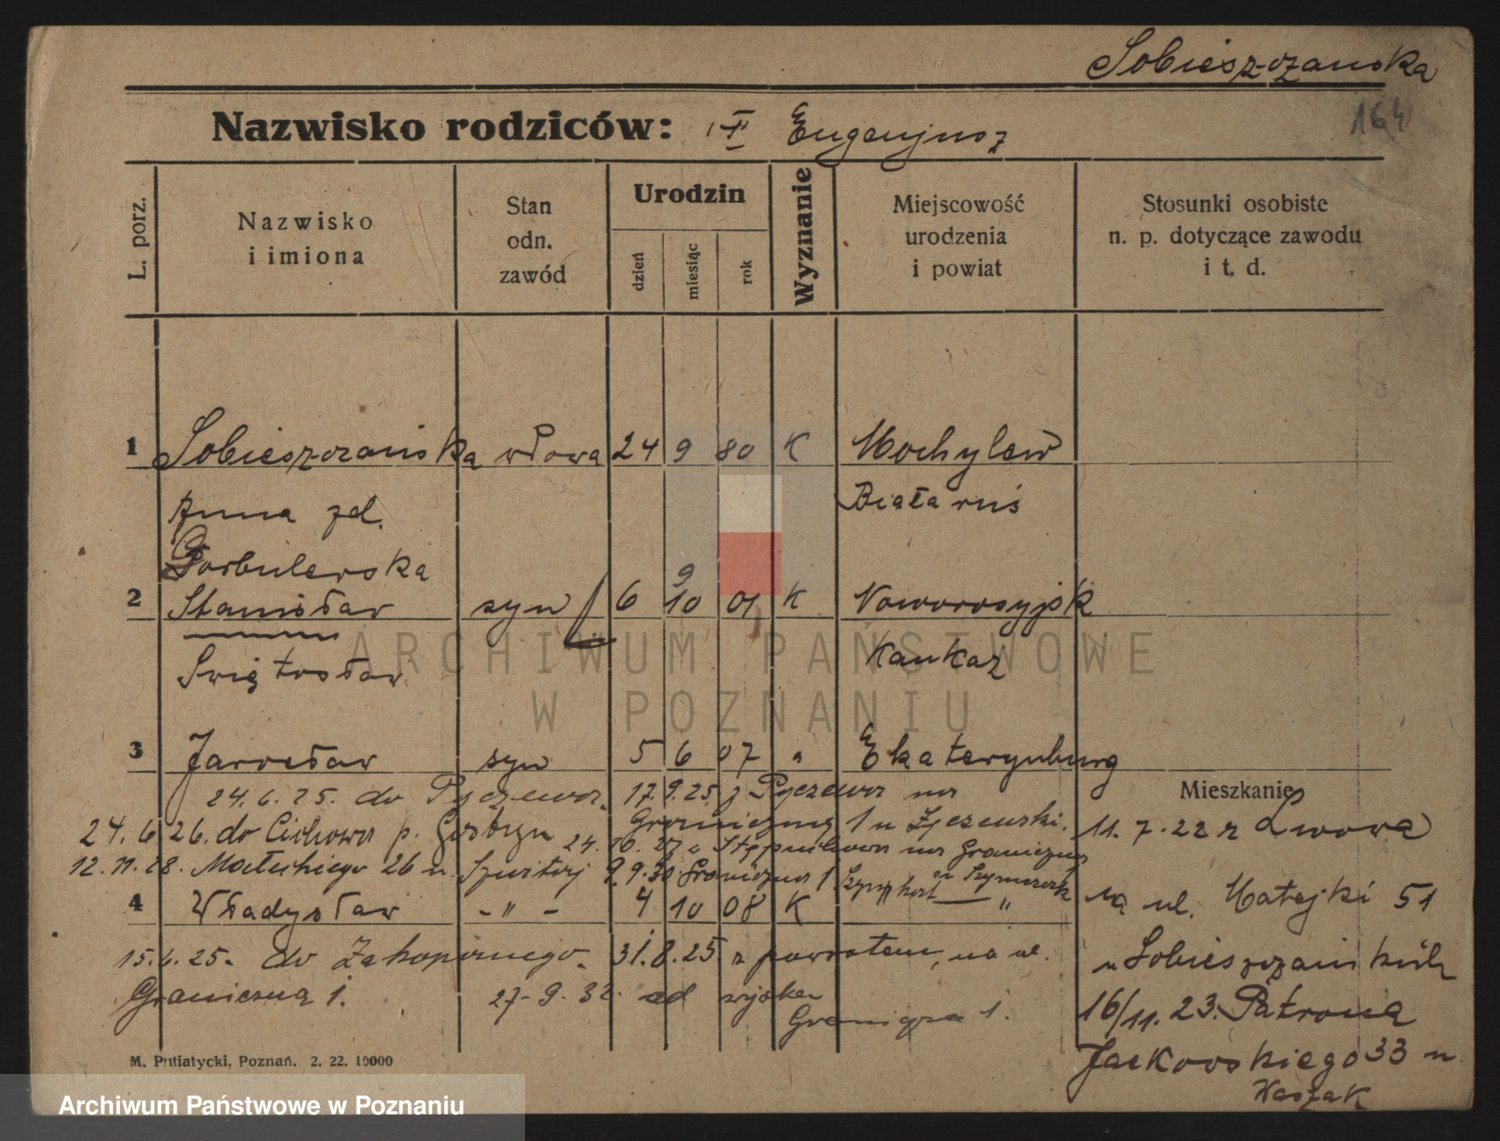 Sobieszczańska
164
Nazwisko rodziców: Eugenjusz
L. porz.
Nazwisko
i imiona
Stan
odn.
zawód
Urodzin
dzień
miesiąc
rok
Wyznanie
Miejscowość
urodzenia
i powiat
Stosunki osobiste
n. p. dotyczące zawodu
i t. d.
1 Sobieszczańska wdowa 24 9 80 K Mochylew
Anna zd. Białaruś
Gorbulewska
9
2 Stanisław syn 6 10 01 K Noworosyjsk
Świętosław Kaukaz
3 Jarosław syn 5 6 07 " Ekaterynburg
24.6.25. do 17.9.25 z na
Mieszkanie
24.6 26. do Cichowa p. Gostyn Graniczną 1 u
11. 7. 22 z Lwowa
24. 10. 27 z na Graniczną
12.11.28. Małeckiego 26 u 9.9.30 Graniczna 1
4 Władysław - " - 4 10 08 K "
na ul. Matejki 51
15.6.25. do Zakopanego. 31.8.25 z powrotem, na ul.
u Sobieszczańskich
Graniczną 1. 27-9.32. od wojska
16/11.23. Patrona
Graniczna 1.
Jackowskiego 33 u
Kaszak
M. Putiatycki, Poznań. 2. 22. 10000
ARCHIWUM PAŃSTWOWE
W POZNANIU
Archiwum Państwowe w Poznaniu